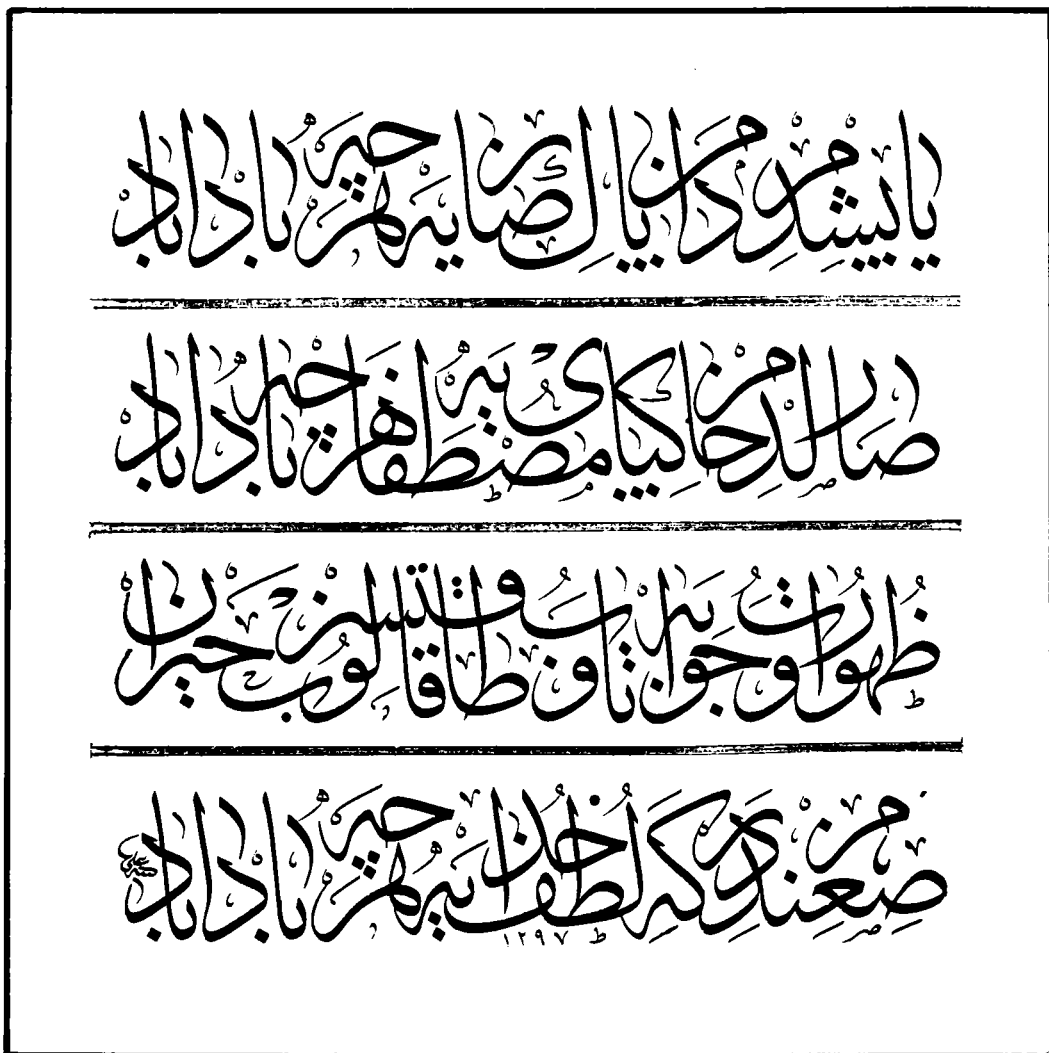 یاپیشدم دامن پاك رضایه هرچه باداباد
صارلدم خاکپای مصطفایه هرچه باداباد
ظهورات وجوابه تاب وطاقتسز قالوب حیران
صغندم درکه لطف خدایه هرچه باداباد
١٢٩٧